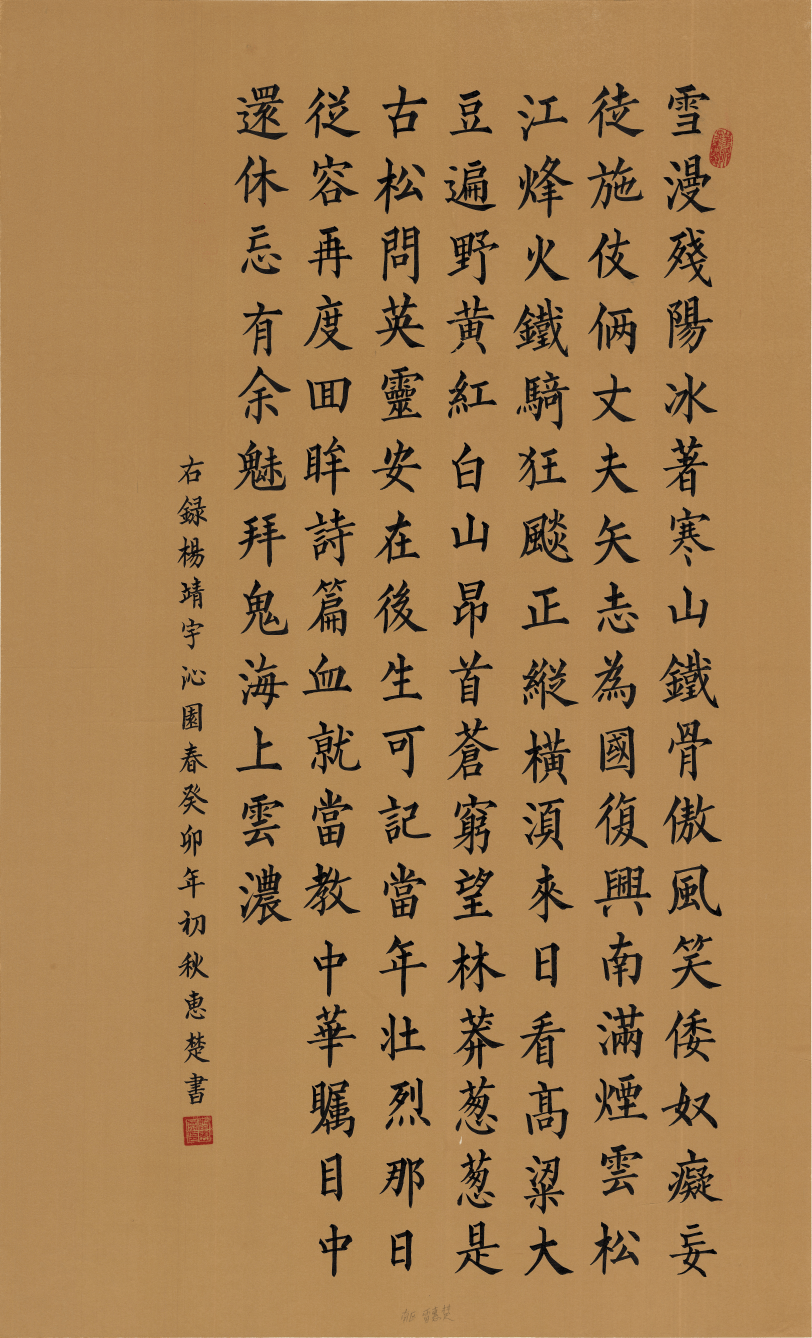 雪漫殘陽冰著寒山鐵骨傲風笑倭奴癡妄
徒施伎倆丈夫矢志為國復興南滿煙雲松
江烽火鐵騎狂飈正縱橫湏來日看髙粱大
豆遍野黄紅白山昂首蒼窮望林莽葱葱是
古松問英靈安在後生可記當年壯烈那日
従容再度回眸詩篇血就當教中華矚目中
還休忘有余魅拜鬼海上雲濃
右録楊靖宇沁園春癸卯年初秋惠楚書